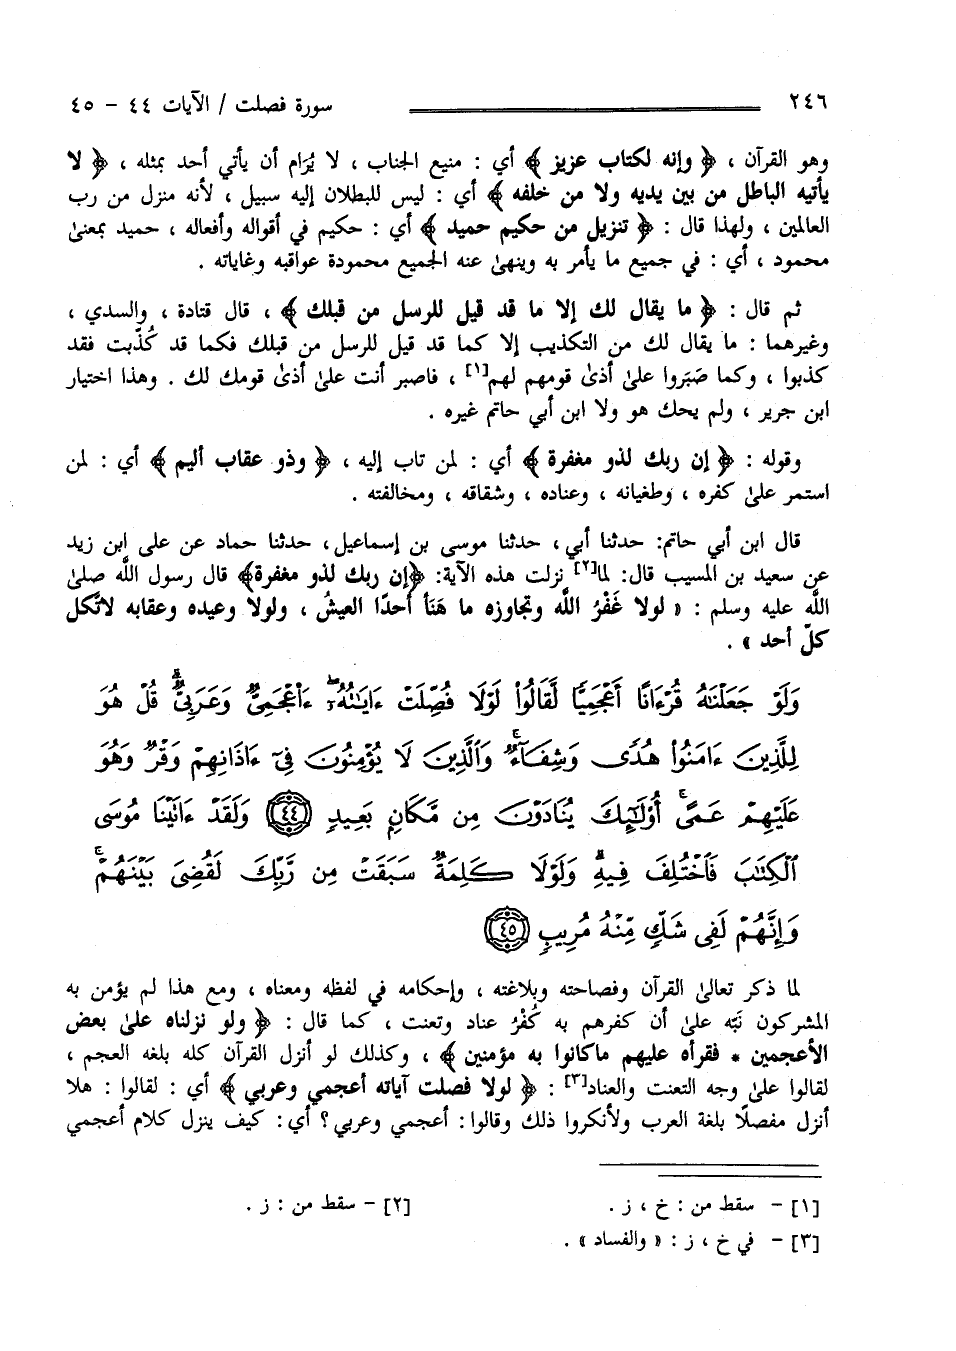 ٢٤٦ سورة فصلت / الآيات ٤٤ - ٤٥
وهو القرآن ، ﴿ وإنه لكتاب عزيز ﴾ أي : منيع الجناب ، لا يُرَام أن يأتي أحد بمثله ، ﴿ لا
يأتيه الباطل من بين يديه ولا من خلفه ﴾ أي : ليس للبطلان إليه سبيل ، لأنه منزل من رب
العالمين ، ولهذا قال : ﴿ تنزيل من حكيم حميد ﴾ أي : حكيم في أقواله وأفعاله ، حميد بمعنىٰ
محمود ، أي : في جميع ما يأمر به وينهىٰ عنه الجميع محمودة عواقبه وغاياته .
ثم قال : ﴿ ما يقال لك إلا ما قد قيل للرسل من قبلك ﴾ ، قال قتادة ، والسدي ،
وغيرهما : ما يقال لك من التكذيب إلا كما قد قيل للرسل من قبلك فكما قد كُذّبت فقد
كذبوا ، وكما صَبَروا علىٰ أذىٰ قومهم لهم[١] ، فاصبر أنت علىٰ أذىٰ قومك لك . وهذا اختيار
ابن جرير ، ولم يحك هو ولا ابن أبي حاتم غيره .
وقوله : ﴿ إن ربك لذو مغفرة ﴾ أي : لمن تاب إليه ، ﴿ وذو عقاب أليم ﴾ أي : لمن
استمر علىٰ كفره ، وطغيانه ، وعناده ، وشقاقه ، ومخالفته .
قال ابن أبي حاتم: حدثنا أبي، حدثنا موسى بن إسماعيل، حدثنا حماد عن على ابن زيد
عن سعيد بن المسيب قال: لما[٢] نزلت هذه الآية: ﴿إن ربك لذو مغفرة﴾ قال رسول الله صلىٰ
الله عليه وسلم : « لولا غَفْرُ الله وتجاوزه ما هَنَأ أحدًا العيشُ ، ولولا وعيده وعقابه لاتَّكل
كلّ أحد » .
وَلَوْ جَعَلْنَٰهُ قُرْءَانًا أَعْجَمِيًّا لَّقَالُوا۟ لَوْلَا فُصِّلَتْ ءَايَٰتُهُۥٓۖ ءَا۬عْجَمِىٌّ وَعَرَبِىٌّۗ قُلْ هُوَ
لِلَّذِينَ ءَامَنُوا۟ هُدًى وَشِفَآءٌۚ وَٱلَّذِينَ لَا يُؤْمِنُونَ فِىٓ ءَاذَانِهِمْ وَقْرٌ وَهُوَ
عَلَيْهِمْ عَمًىۚ أُو۟لَٰٓئِكَ يُنَادَوْنَ مِن مَّكَانٍۭ بَعِيدٍ ﴿٤٤﴾ وَلَقَدْ ءَاتَيْنَا مُوسَى
ٱلْكِتَٰبَ فَٱخْتُلِفَ فِيهِۗ وَلَوْلَا كَلِمَةٌ سَبَقَتْ مِن رَّبِّكَ لَقُضِىَ بَيْنَهُمْۚ
وَإِنَّهُمْ لَفِى شَكٍّ مِّنْهُ مُرِيبٍ ﴿٤٥﴾
لما ذكر تعالىٰ القرآن وفصاحته وبلاغته ، وإحكامه في لفظه ومعناه ، ومع هذا لم يؤمن به
المشركون نَبّه علىٰ أن كفرهم به كُفْرُ عناد وتعنت ، كما قال : ﴿ ولو نزلناه علىٰ بعض
الأعجمين * فقرأه عليهم ماكانوا به مؤمنين ﴾ ، وكذلك لو أنزل القرآن كله بلغة العجم ،
لقالوا علىٰ وجه التعنت والعناد[٣] : ﴿ لولا فصلت آياته أعجمي وعربي ﴾ أي : لقالوا : هلا
أنزل مفصلًا بلغة العرب ولأنكروا ذلك وقالوا: أعجمي وعربي؟ أي: كيف ينزل كلام أعجمي
[١] - سقط من : خ ، ز . [٢] - سقط من : ز .
[٣] - في خ ، ز : « والفساد » .